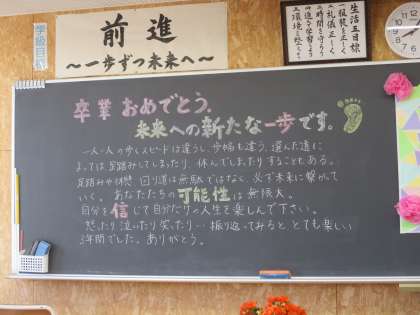 学級目標
前進
～一歩ずつ未来へ～
生活五目標
一、服装を正しく
二、礼儀正しく
三、時間を守ろう
四、進んで学習しよう
五、環境を整えよう
卒業おめでとう。
未来への新たな一歩です。
一人一人の歩くスピードは違うし、歩幅も違う。選んだ道に
よっては足踏みしてしまったり、休んでしまったりすることもある。
足踏みや休憩、回り道は無駄ではなく、必ず未来に繋がって
いく。あなたたちの可能性は無限大。
自分を信じて自分たちの人生を楽しんで下さい。
怒ったり泣いたり笑ったり…振り返ってみると、とても楽しい
3年間でした。ありがとう。